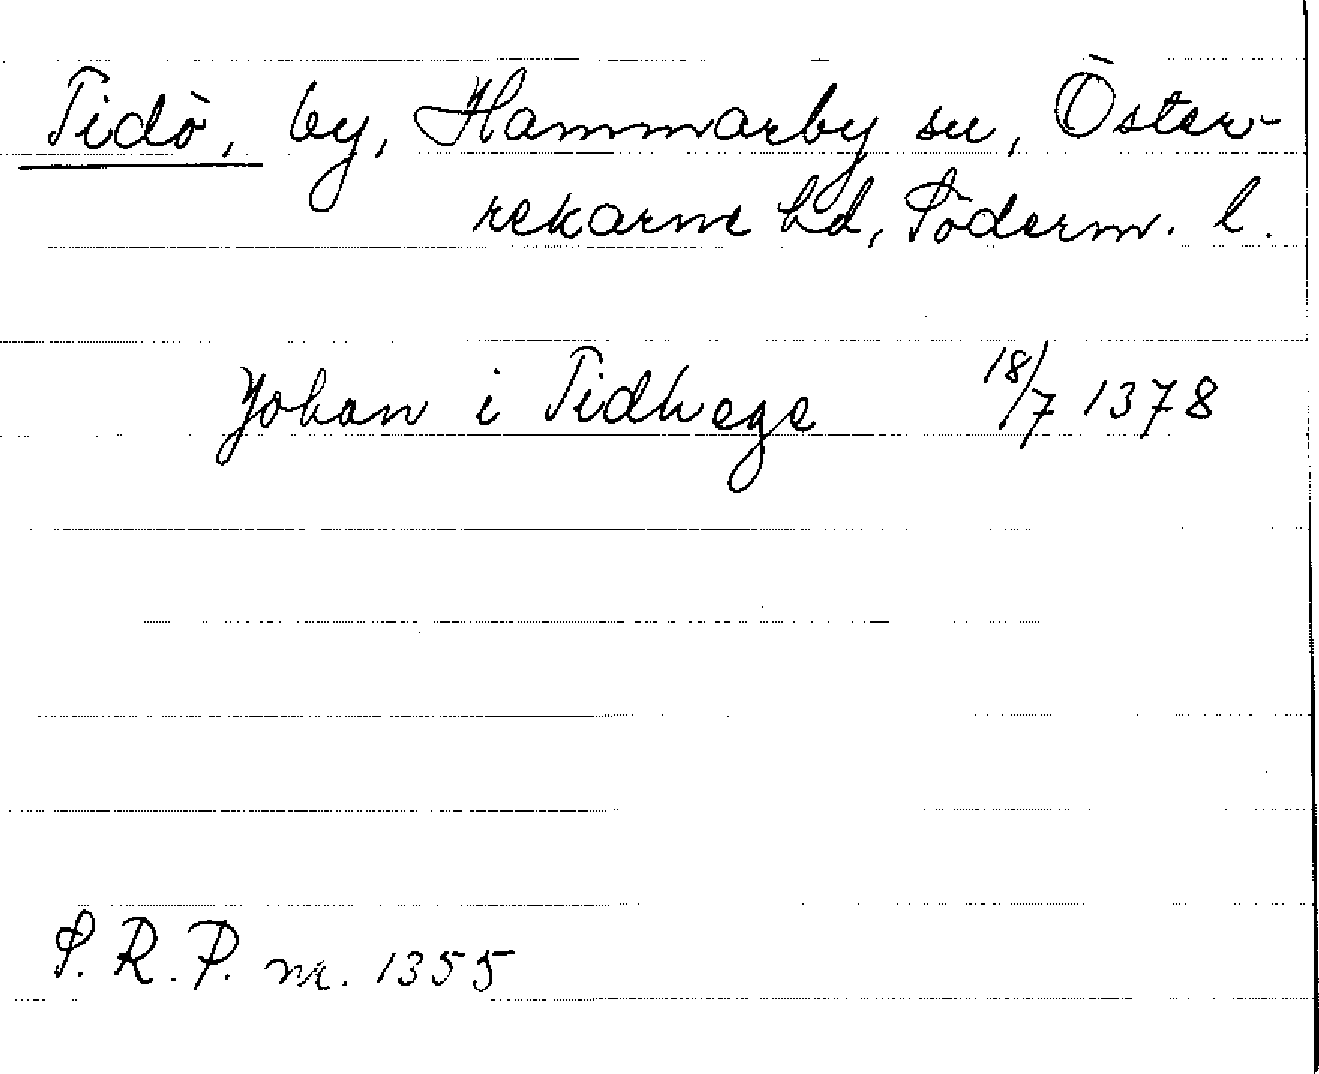 Tidö, by, Hammarby sn, Öster-
rekarne hd, Söderm. l.
Johan i Tidhege 18/7 1378
S. R. P. nr. 1355